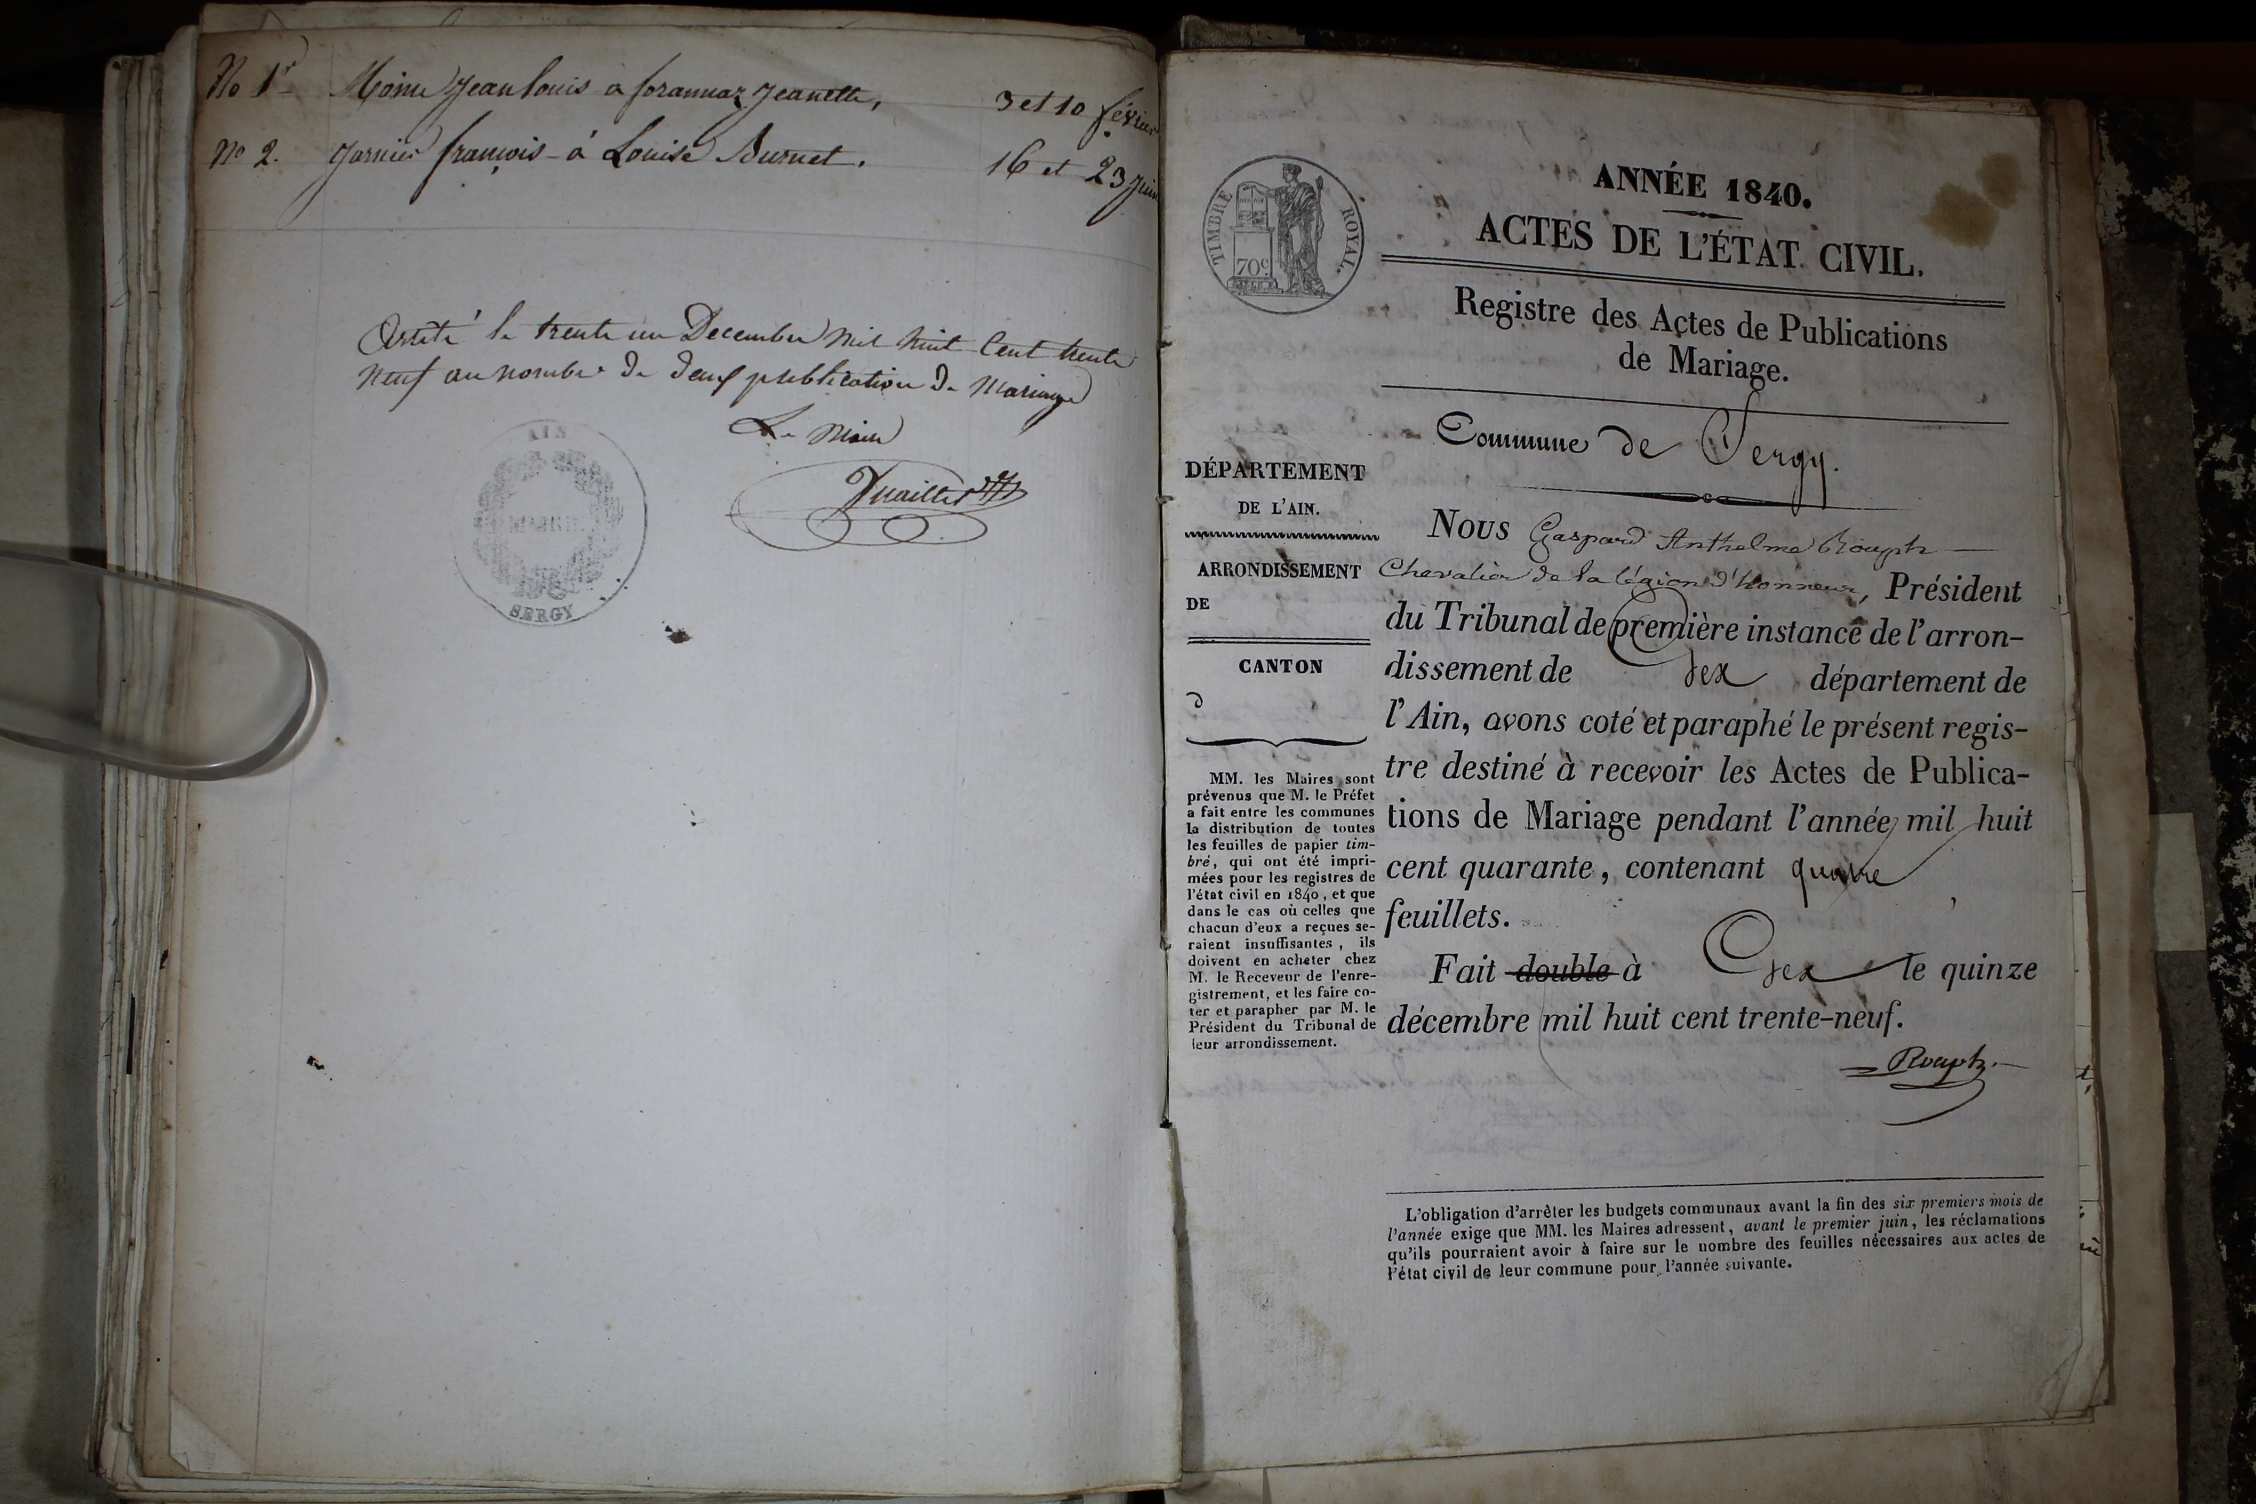 No 1r Moine Jean Louis à forannaz Jeanette, 3 et 10 février
No 2. Garnier françois à Louise Burnet. 16 et 23 Juin
Arreté le trente un Decembre mil huit Cent trente
neuf au nombre de deux publication de Mariage
Le Maire
AIN
MAIRIE
SERGY
TIMBRE ROYAL.
70c
ANNÉE 1840.
ACTES DE L'ÉTAT CIVIL.
Registre des Actes de Publications
de Mariage.
Commune de Sergy.
DÉPARTEMENT
DE L'AIN.
ARRONDISSEMENT
DE
CANTON
d
MM. les Maires sont
prévenus que M. le Préfet
a fait entre les communes
la distribution de toutes
les feuilles de papier tim-
bré, qui ont été impri-
mées pour les registres de
l'état civil en 1840, et que
dans le cas où celles que
chacun d'eux a reçues se-
raient insuffisantes, ils
doivent en acheter chez
M. le Receveur de l'enre-
gistrement, et les faire co-
ter et parapher par M. le
Président du Tribunal de
leur arrondissement.
Nous Gaspard Anthelme Rouph
Chevalier de la légion d'honneur, Président
du Tribunal de première instance de l'arron-
dissement de Gex département de
l'Ain, avons coté et paraphé le présent regis-
tre destiné à recevoir les Actes de Publica-
tions de Mariage pendant l'année mil huit
cent quarante, contenant quatre
feuillets.
Fait double à Gex le quinze
décembre mil huit cent trente-neuf.
Rouph.
L'obligation d'arrêter les budgets communaux avant la fin des six premiers mois de
l'année exige que MM. les Maires adressent, avant le premier juin, les réclamations
qu'ils pourraient avoir à faire sur le nombre des feuilles nécessaires aux actes de
l'état civil de leur commune pour l'année suivante.